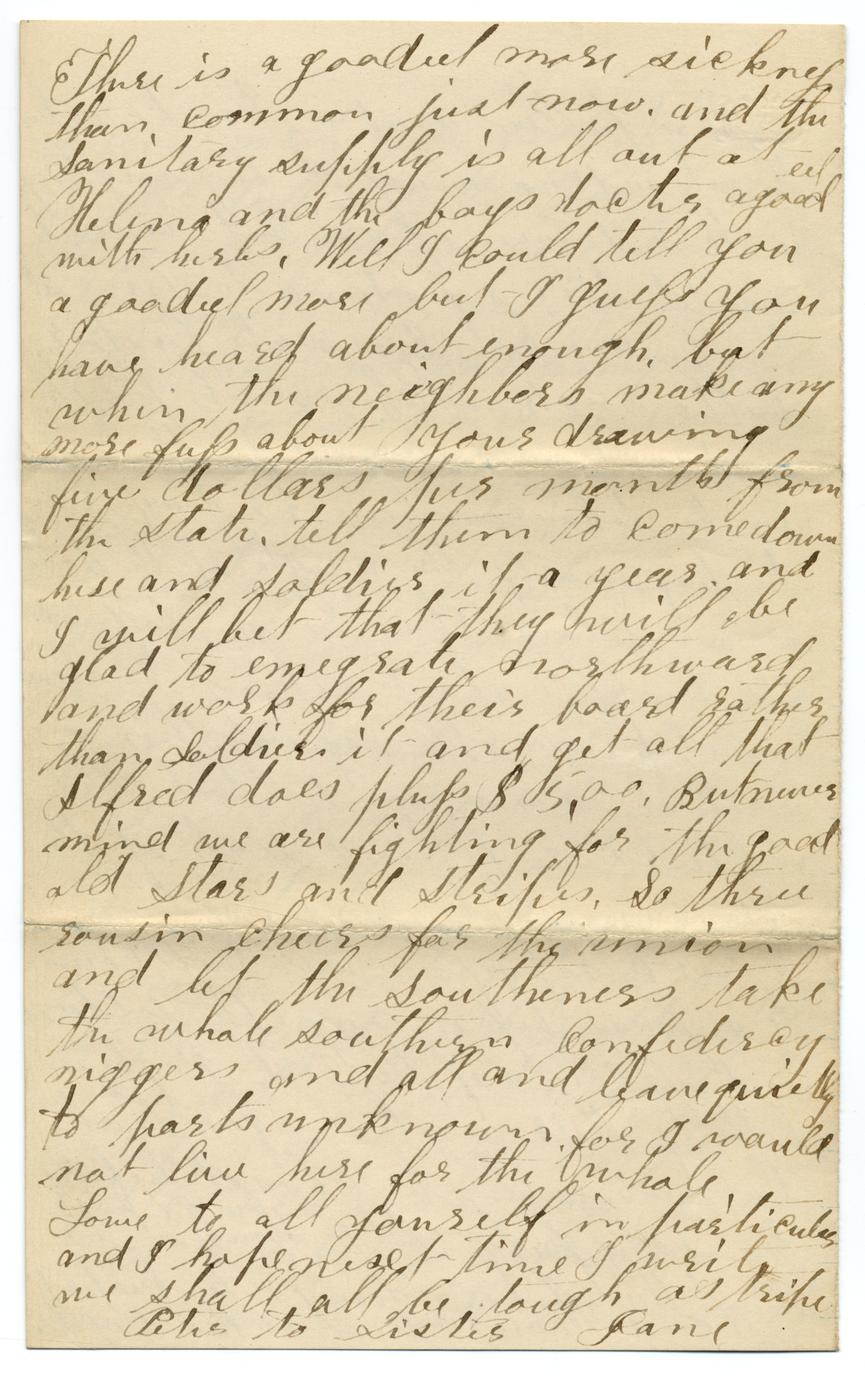 There is a goodeel more sickness
than common just now. and the
sanitary supply is all out at
Helena and the boys docter agood eel
with herbs, Well I could tell you
a goodeel more but I guess you
have heard about enough, but
when the neighbers make any
more fuss about your drawing
five dollars per month from
the state, tell them to come down
here and soldier it a year and
I will bet that they will be
glad to emegrate northward
and work for their board rather
than soldier it and get all that
Alfred does pluss $5,00, But never
mind we are fighting for the good
old Stars and stripes, So three
rousin cheers for the union
and let the southeners take
the whole southern Confedercy
niggers and all and leave quietly
to parts unknown, for I would
not live here for the whole
Love to all yourself in particular
and I hope nixet time I write
we shall all be tough as tripe
Pete to Sister Jane